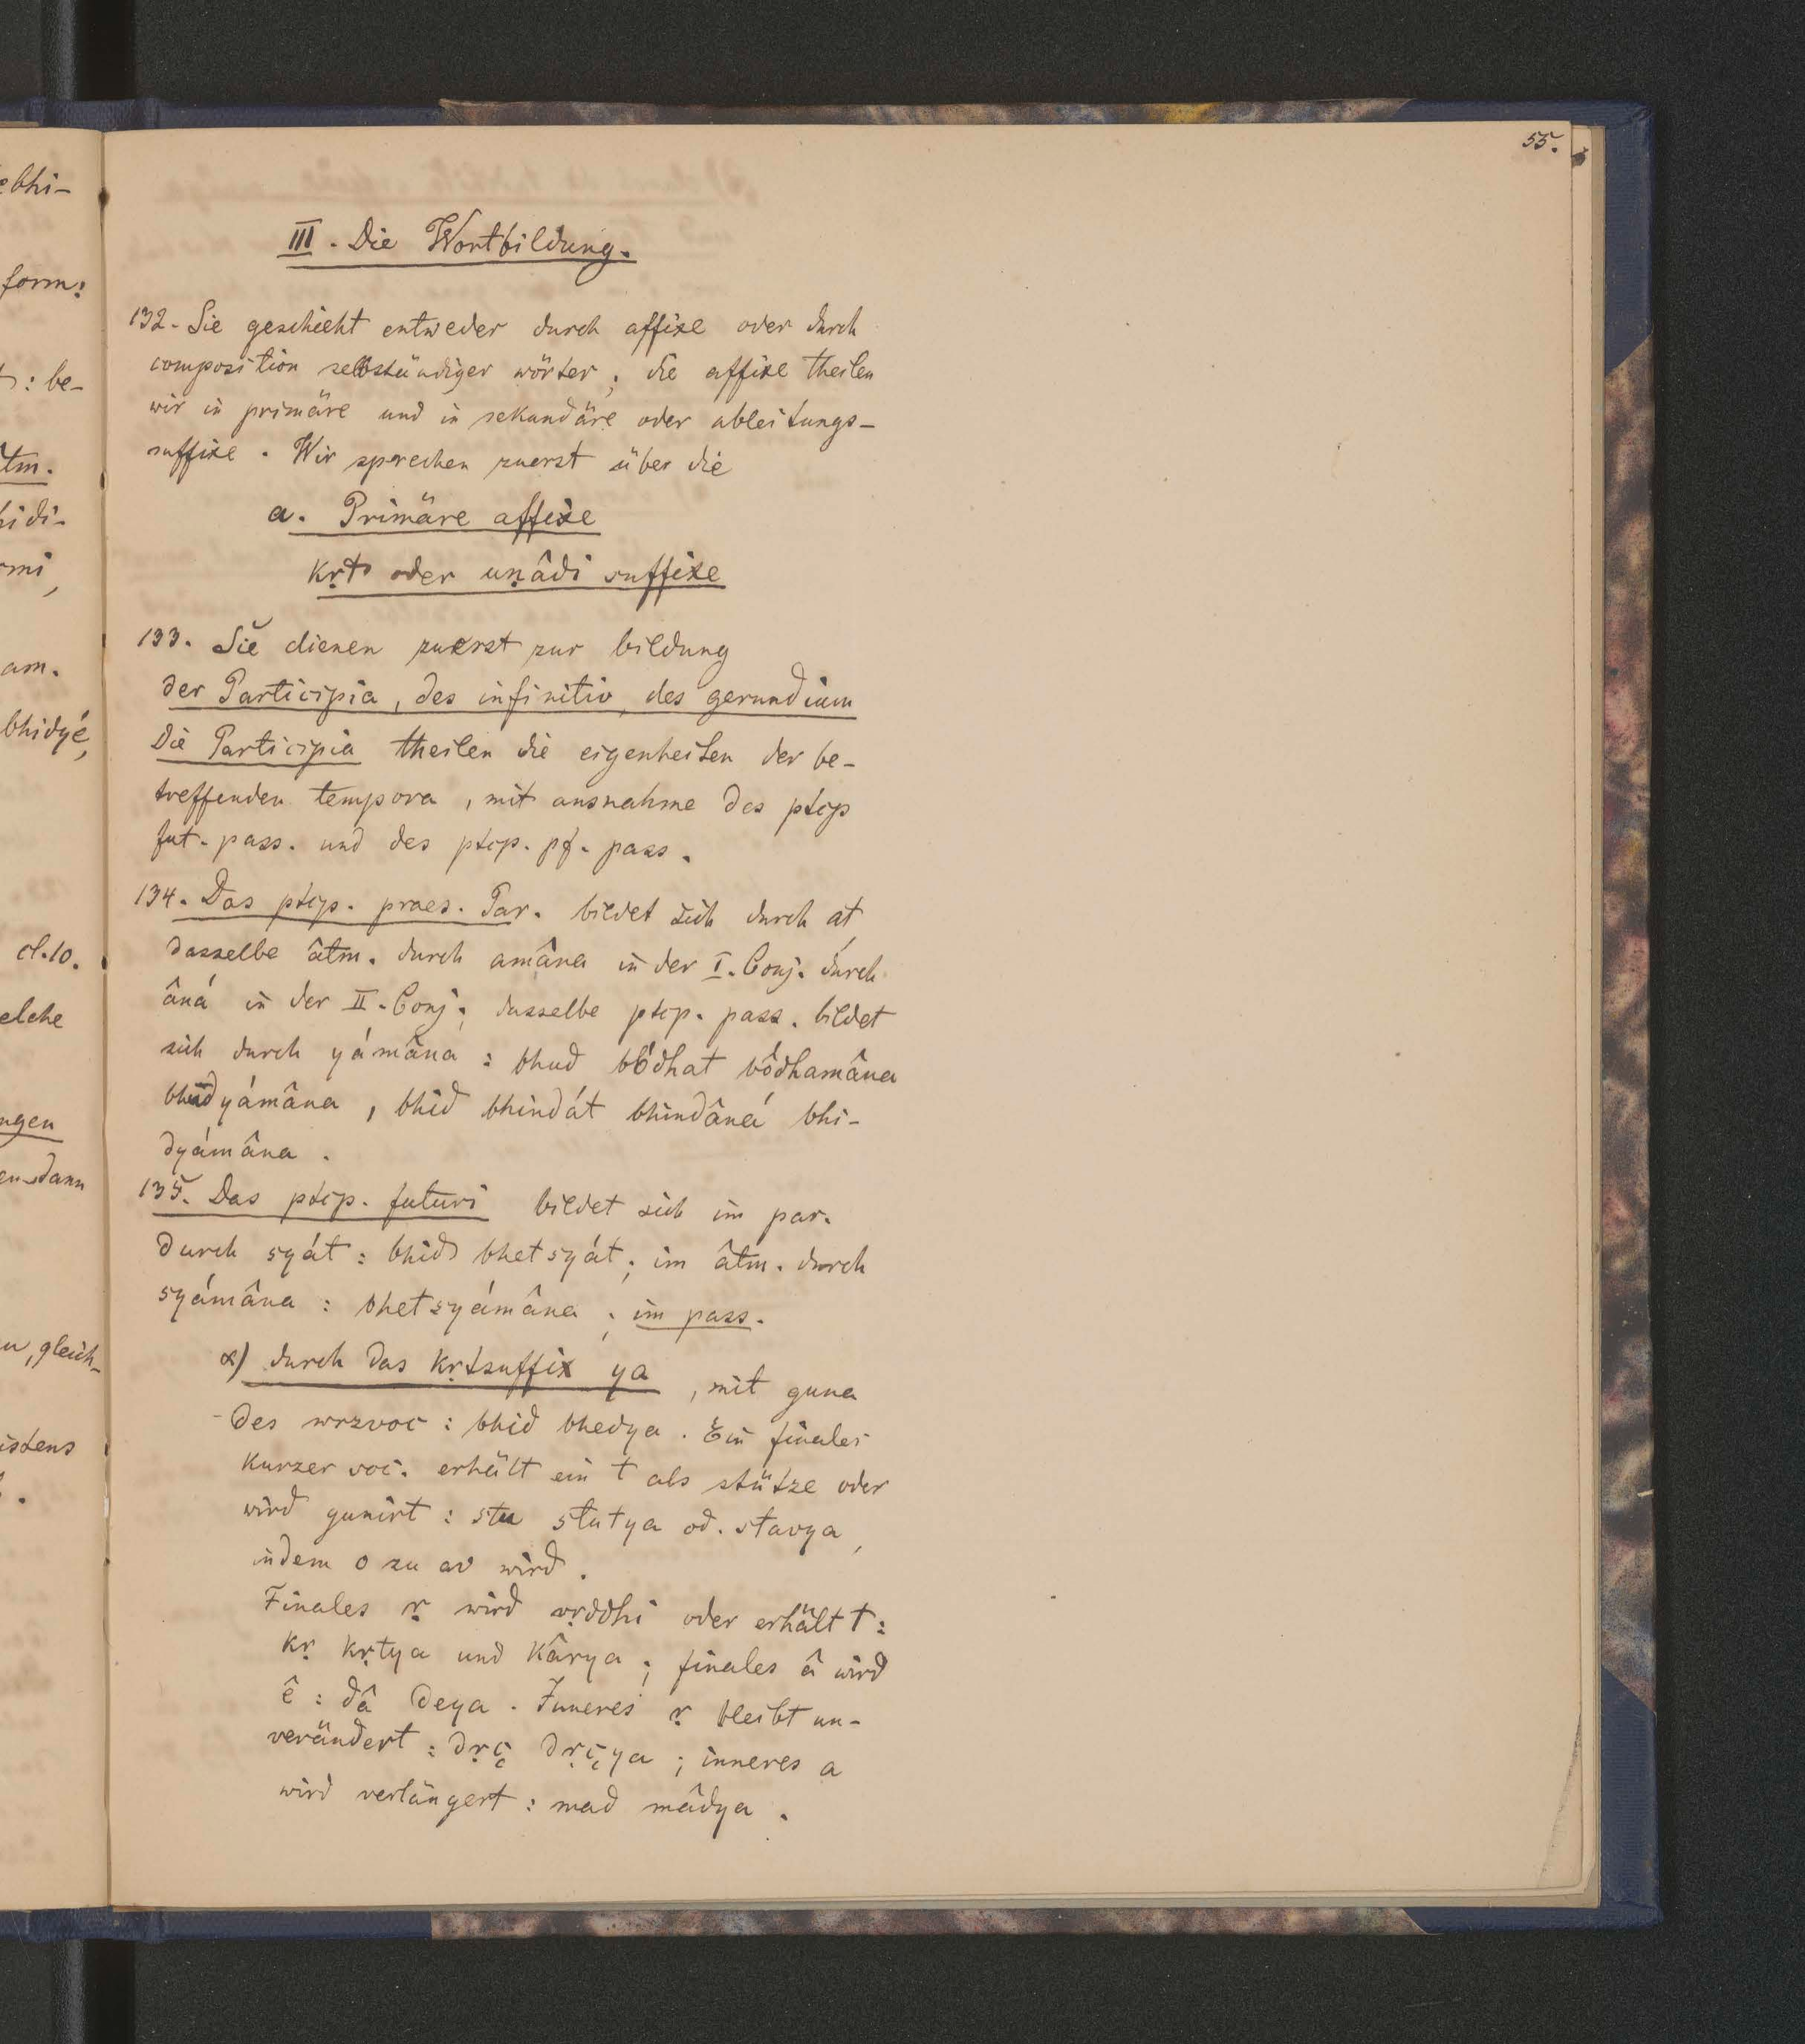 55.
III. Die Wortbildung.
132. Sie geschieht entweder durch affixe oder durch
composition selbständiger wörter; die affixe theilen
wir in primäre und in sekundäre oder ableitungs-
suffixe. Wir sprechen zuerst über die
a. Primäre affixe
kṛt oder uṇâdi suffixe
133. Sie dienen zuerst zur bildung
der Participia, des infinitiv, des gerundium
Die Participia theilen die eigenheiten der be-
treffenden tempora, mit ausnahme des ptcp
fut. pass. und des ptcp. pf. pass.
134. Das ptcp. praes. Par. bildet sich durch at,
dasselbe âtm. durch amâna in der I. Conj. durch
âná in der II. Conj.; dasselbe ptcp. pass. bildet
sich durch yámâna: bhud bốdhat bốdhamâna
bhudyámâna, bhid bhindát bhindâná bhi-
dyámâna.
135. Das ptcp. futuri bildet sich im par.
durch syát: bhid bhetsyát; im âtm. durch
syámâna: bhetsyámâna; im pass.
α) durch das kṛtsuffix ya, mit guna
des wrzvoc: bhid bhedya. Ein finaler
kurzer voc. erhält ein t als stütze oder
wird gunirt: stu stutya od. stavya,
indem o zu av wird.
Finales ṛ wird vṛddhi oder erhält t:
kṛ kṛtya und kârya; finales â wird
ê: dâ deya. Inneres ṛ bleibt un-
verändert: dṛç dṛçya; inneres a
wird verlängert: mad mâdya.
ebhi-
form:
: be-
âtm.
hidi-
rmi,
am.
bhidyé,
cl. 10.
elche
ngen
dann
u, gleich-
istens